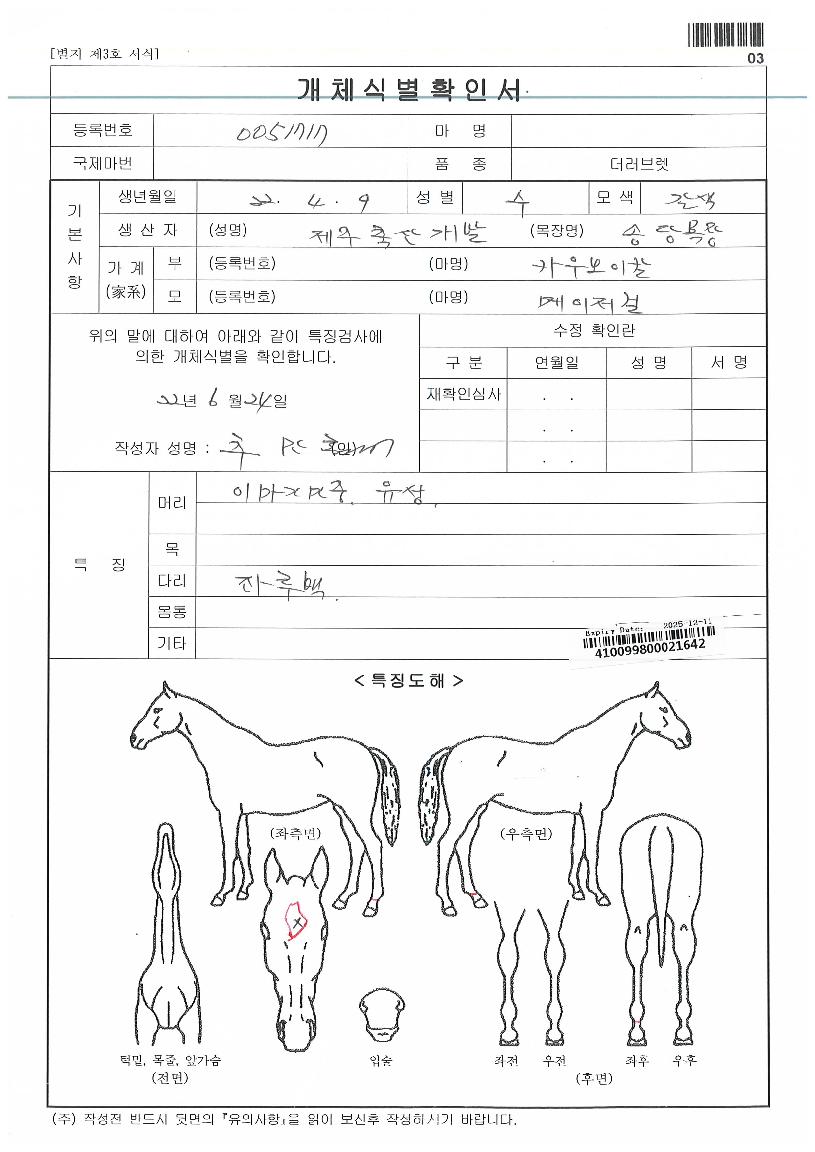 [별지 제3호 서식]
03
개체식별확인서
등록번호 0051717 마 명
국제마번 품 종 더러브렛
기본사항
생년월일 22. 4. 9 성 별 수 모 색 갈색
생 산 자 (성명) 제주축산개발 (목장명) 송당목장
가 계 (家系) 부 (등록번호) (마명) 카우보이칼
모 (등록번호) (마명) 메이저걸
위의 말에 대하여 아래와 같이 특징검사에
의한 개체식별을 확인합니다.
22년 6월 24일
작성자 성명 : (인)
수정 확인란
구 분 연월일 성 명 서 명
재확인심사 . .
. .
. .
특 징
머리 유성.
목
다리 좌후백.
몸통
기타
Expiry Date: 2025-12-11
410099800021642
< 특징도해 >
(좌측면) (우측면)
턱밑, 목줄, 앞가슴
(전면)
입술
좌전 우전 좌후 우후
(후면)
(주) 작성전 반드시 뒷면의 『유의사항』을 읽어 보신후 작성하시기 바랍니다.